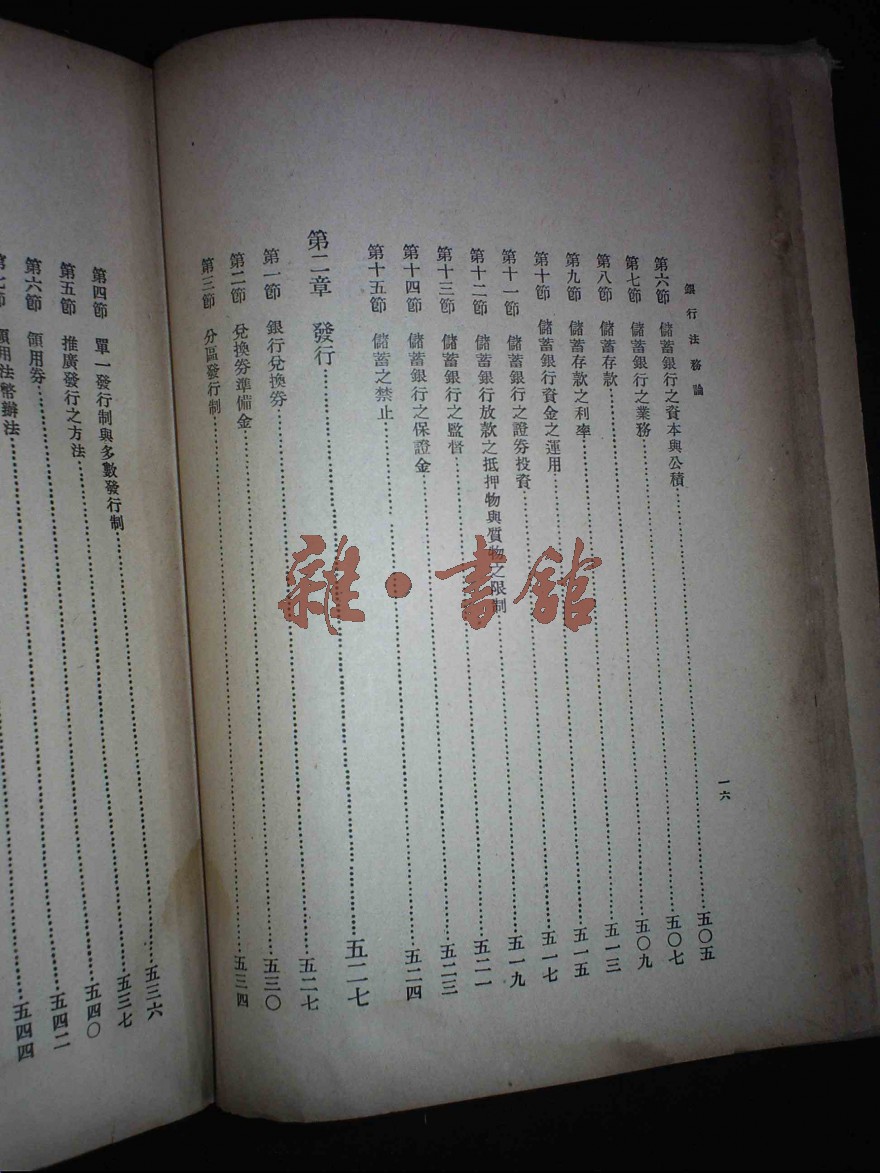 銀行法務論
一六
第六節 儲蓄銀行之資本與公積……五〇五
第七節 儲蓄銀行之業務……五〇七
第八節 儲蓄存款……五〇九
第九節 儲蓄存款之利率……五一三
第十節 儲蓄銀行資金之運用……五一五
第十一節 儲蓄銀行之證券投資……五一七
第十二節 儲蓄銀行放款之抵押物與質物之限制……五一九
第十三節 儲蓄銀行之監督……五二一
第十四節 儲蓄銀行之保證金……五二三
第十五節 儲蓄之禁止……五二四
第二章 發行……五二七
第一節 銀行兌換券……五二七
第二節 兌換券準備金……五三〇
第三節 分區發行制……五三四
第四節 單一發行制與多數發行制……五三六
第五節 推廣發行之方法……五三七
第六節 領用券……五四〇
第七節 領用法幣辦法……五四二
五四四
雜·書館